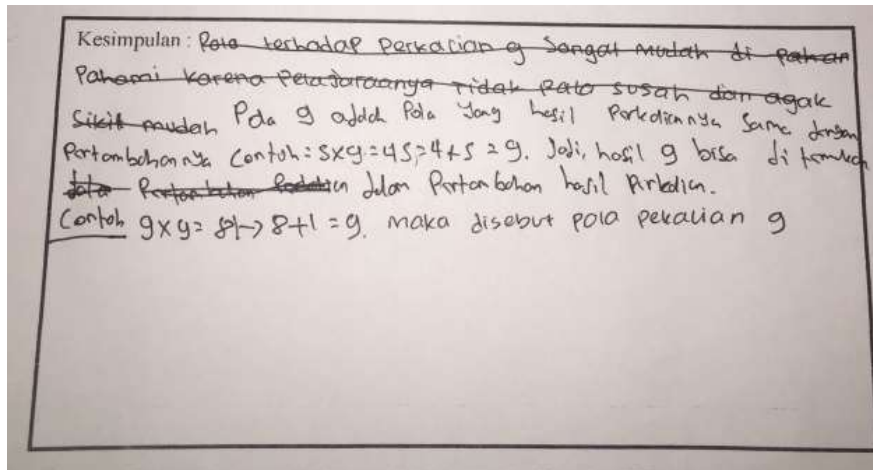 Kesimpulan : Pola terhadap perkalian 9 Sangat mudah di paham
Pahami karena Pelajaraanya tidak Pato susah dan agak
Sikit mudah Pola 9 adalah Pola Yang hasil Perkaliannya Sama dengan
Pertambahannya Contoh: 5x9=45,=4+5=9. Jadi, hasil 9 bisa di temukan
Pertambahan dalam Pertambahan hasil Perkalian.
Contoh 9x9= 81→8+1=9. maka disebut pola pekalian 9